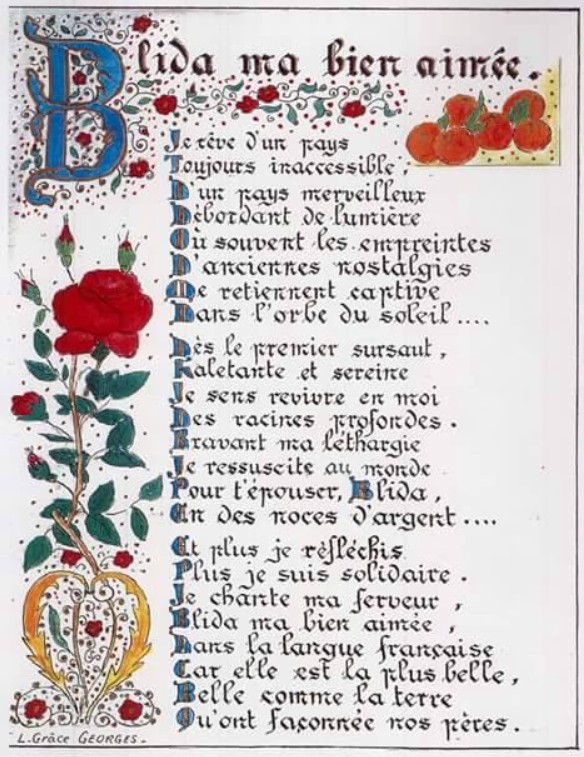 Blida ma bien aimée.
Je rêve d'un pays
Toujours inaccessible,
D'un pays merveilleux
Débordant de lumière
Où souvent les empreintes
D'anciennes nostalgies
Me retiennent captive
Dans l'orbe du soleil....
Dès le premier sursaut,
Haletante et sereine
Je sens revivre en moi
Des racines profondes.
Bravant ma léthargie
Je ressuscite au monde
Pour t'épouser, Blida,
En des noces d'argent....
Et plus je réfléchis
Plus je suis solidaire.
Je chante ma ferveur,
Blida ma bien aimée,
Dans la langue française
Car elle est la plus belle,
Belle comme la terre
Qu'ont façonnée nos pères.
L. Grâce GEORGES.